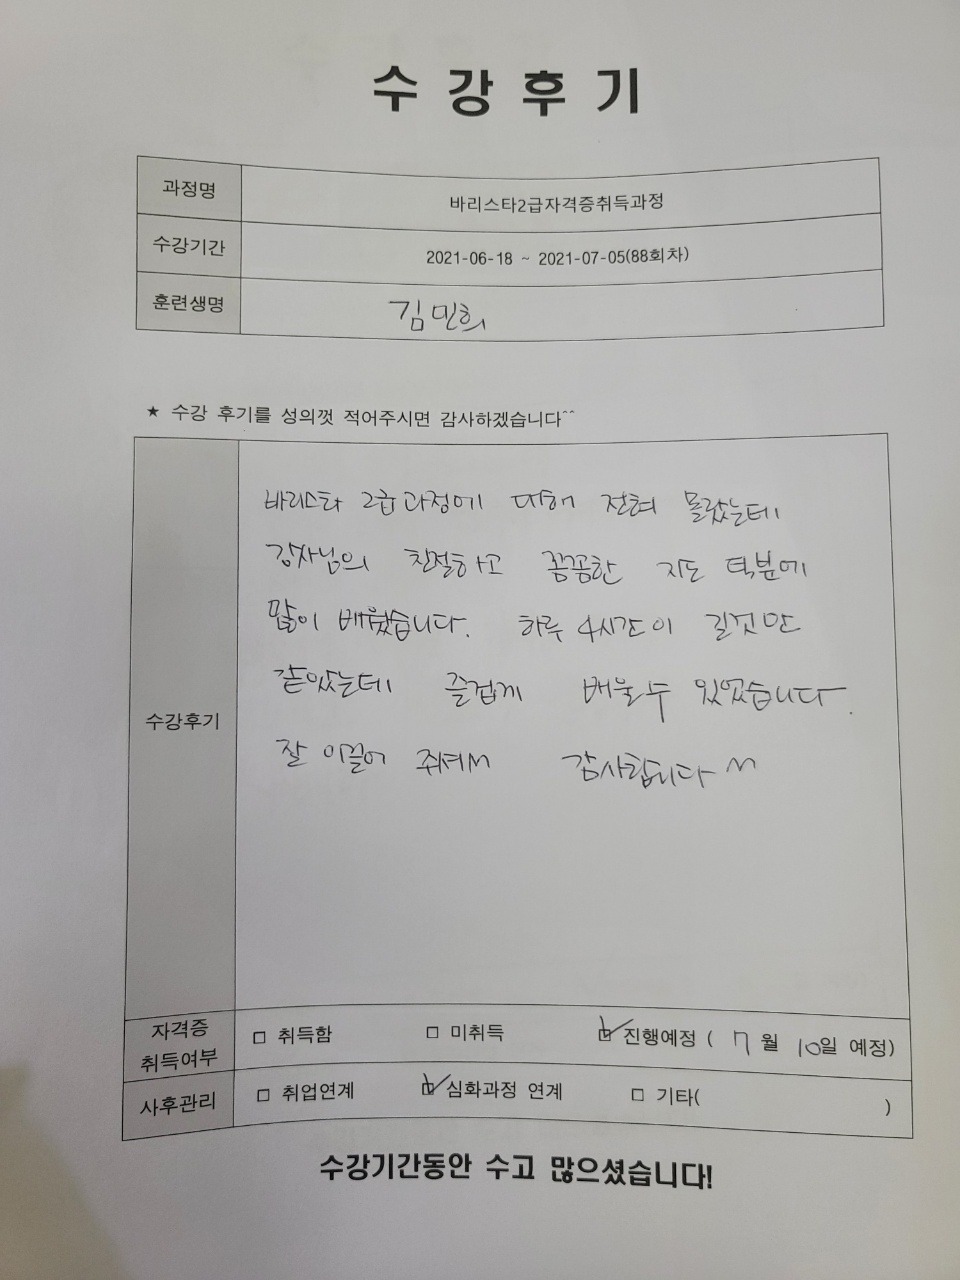 수강후기
과정명 바리스타2급자격증취득과정
수강기간 2021-06-18 ~ 2021-07-05(88회차)
훈련생명 김민희
★ 수강 후기를 성의껏 적어주시면 감사하겠습니다^^
바리스타 2급과정에 대해 전혀 몰랐는데
강사님의 친절하고 꼼꼼한 지도 덕분에
많이 배웠습니다. 하루 4시간이 길것만
같았는데 즐겁게 배울수 있었습니다.
수강후기
잘 이끌어 주셔서 감사합니다 ^^
자격증 취득여부 □ 취득함 □ 미취득 ☑ 진행예정 ( 7월 10일 예정)
사후관리 □ 취업연계 ☑ 심화과정 연계 □ 기타( )
수강기간동안 수고 많으셨습니다!